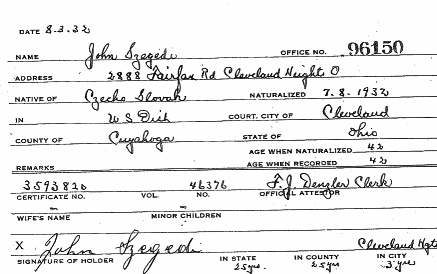 DATE 8-3-32
NAME John Szegedi OFFICE NO. 96150
ADDRESS 2888 Fairfax Rd Cleveland Height O
NATIVE OF Czecho Slovak NATURALIZED 7-8-1932
IN U S Dist COURT. CITY OF Cleveland
COUNTY OF Cuyahoga STATE OF Ohio
AGE WHEN NATURALIZED 42
REMARKS AGE WHEN RECORDED 42
3593820 46376 F. J. Denzler Clerk
CERTIFICATE NO. VOL. NO. OFFICIAL ATTESTOR
WIFE'S NAME MINOR CHILDREN
X John Szegedi Cleveland Hgts
SIGNATURE OF HOLDER IN STATE IN COUNTY IN CITY
25 yrs 25 yrs 3 yrs